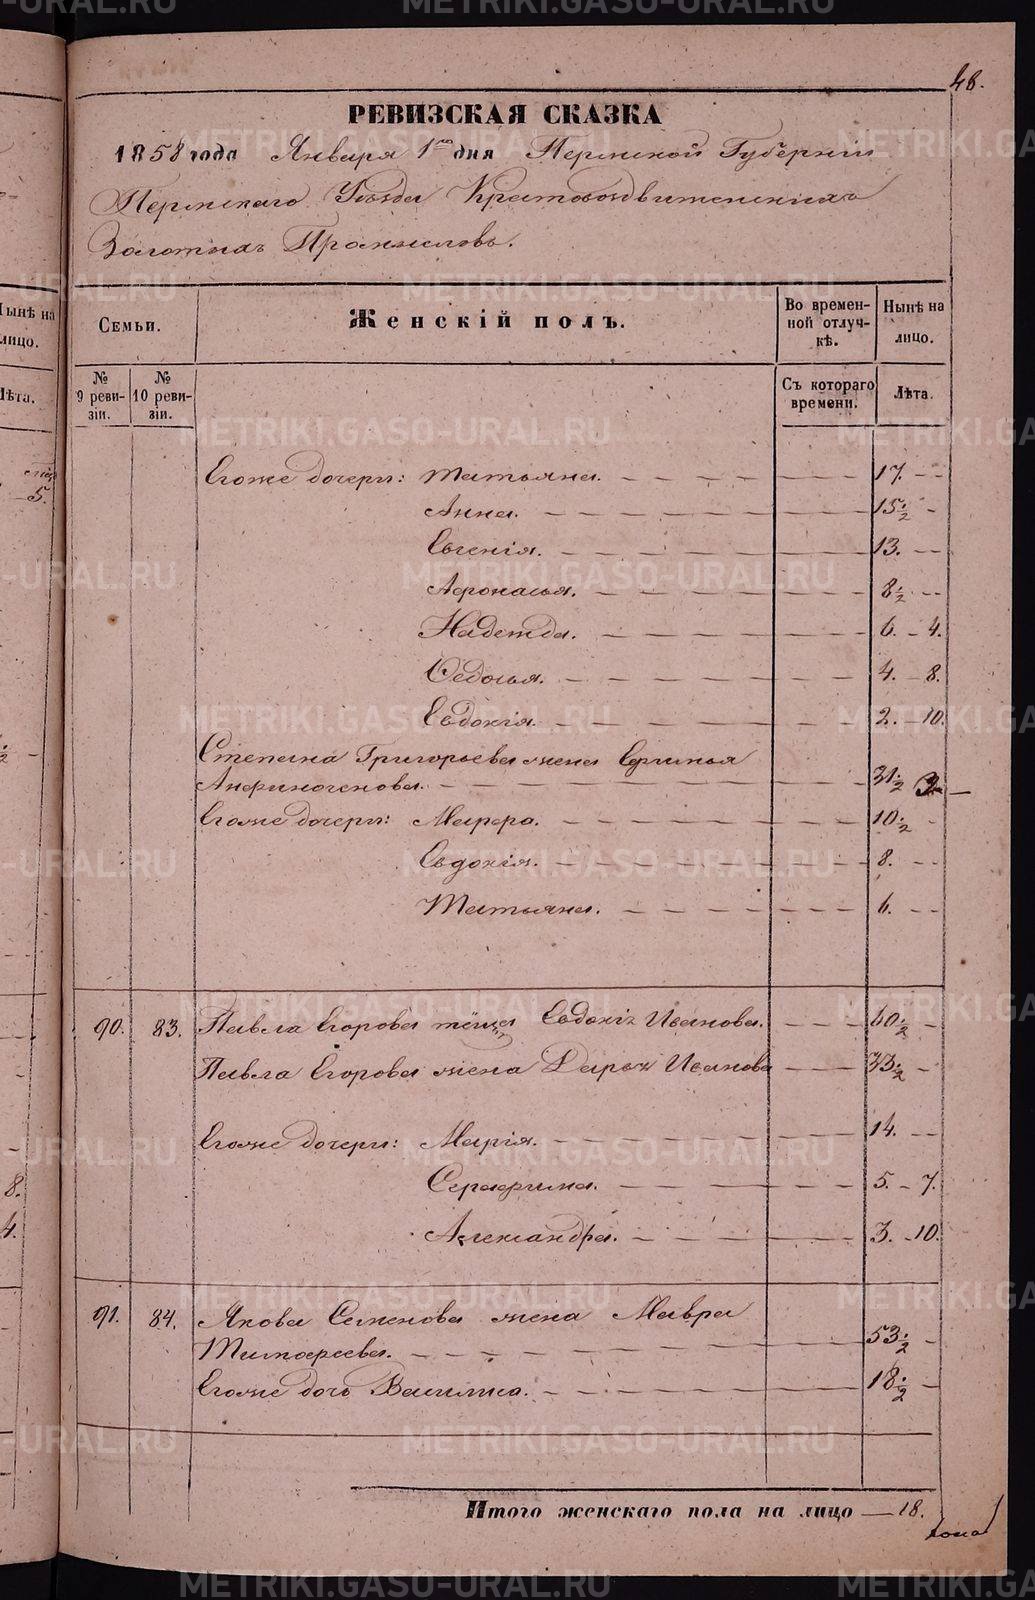 48.
РЕВИЗСКАЯ СКАЗКА
1858 года Января 1го дня Пермской Губерніи
Пермскаго Уѣзда Крестовоздвиженскихъ
Золотыхъ Промысловъ.
Семьи.
Женскій полъ.
Во времен-
ной отлуч-
кѣ.
Нынѣ на
лицо.
№
9 реви-
зіи.
№
10 реви-
зіи.
Съ котораго
времени.
Лѣта.
Его же дочери: Татьяна. 17.
Анна. 15 1/2
Евгенія. 13.
Афонасья. 8 1/2
Надежда. 6. - 4.
Федосья. 4. - 8.
Евдокія. 2. - 10.
Степана Григорьева жена
Анфиногенова. 31 1/2
Его же дочери: Марфа. 10 1/2
Евдокія. 8.
Татьяна. 6.
90. 83. Павла Егорова тёща Евдокія Иванова. 60 1/2
Павла Егорова жена Дарья Иванова 33 1/2
Его же дочери: Марія. 14.
Серафима. 5. - 7.
Александра. 3. - 10.
91. 84. Якова Семенова жена Мавра
Тимофеева. 53 1/2
Его же дочь Василиса. 18 1/2
Итого женскаго пола на лицо — 18.
METRIKI.GASO-URAL.RU